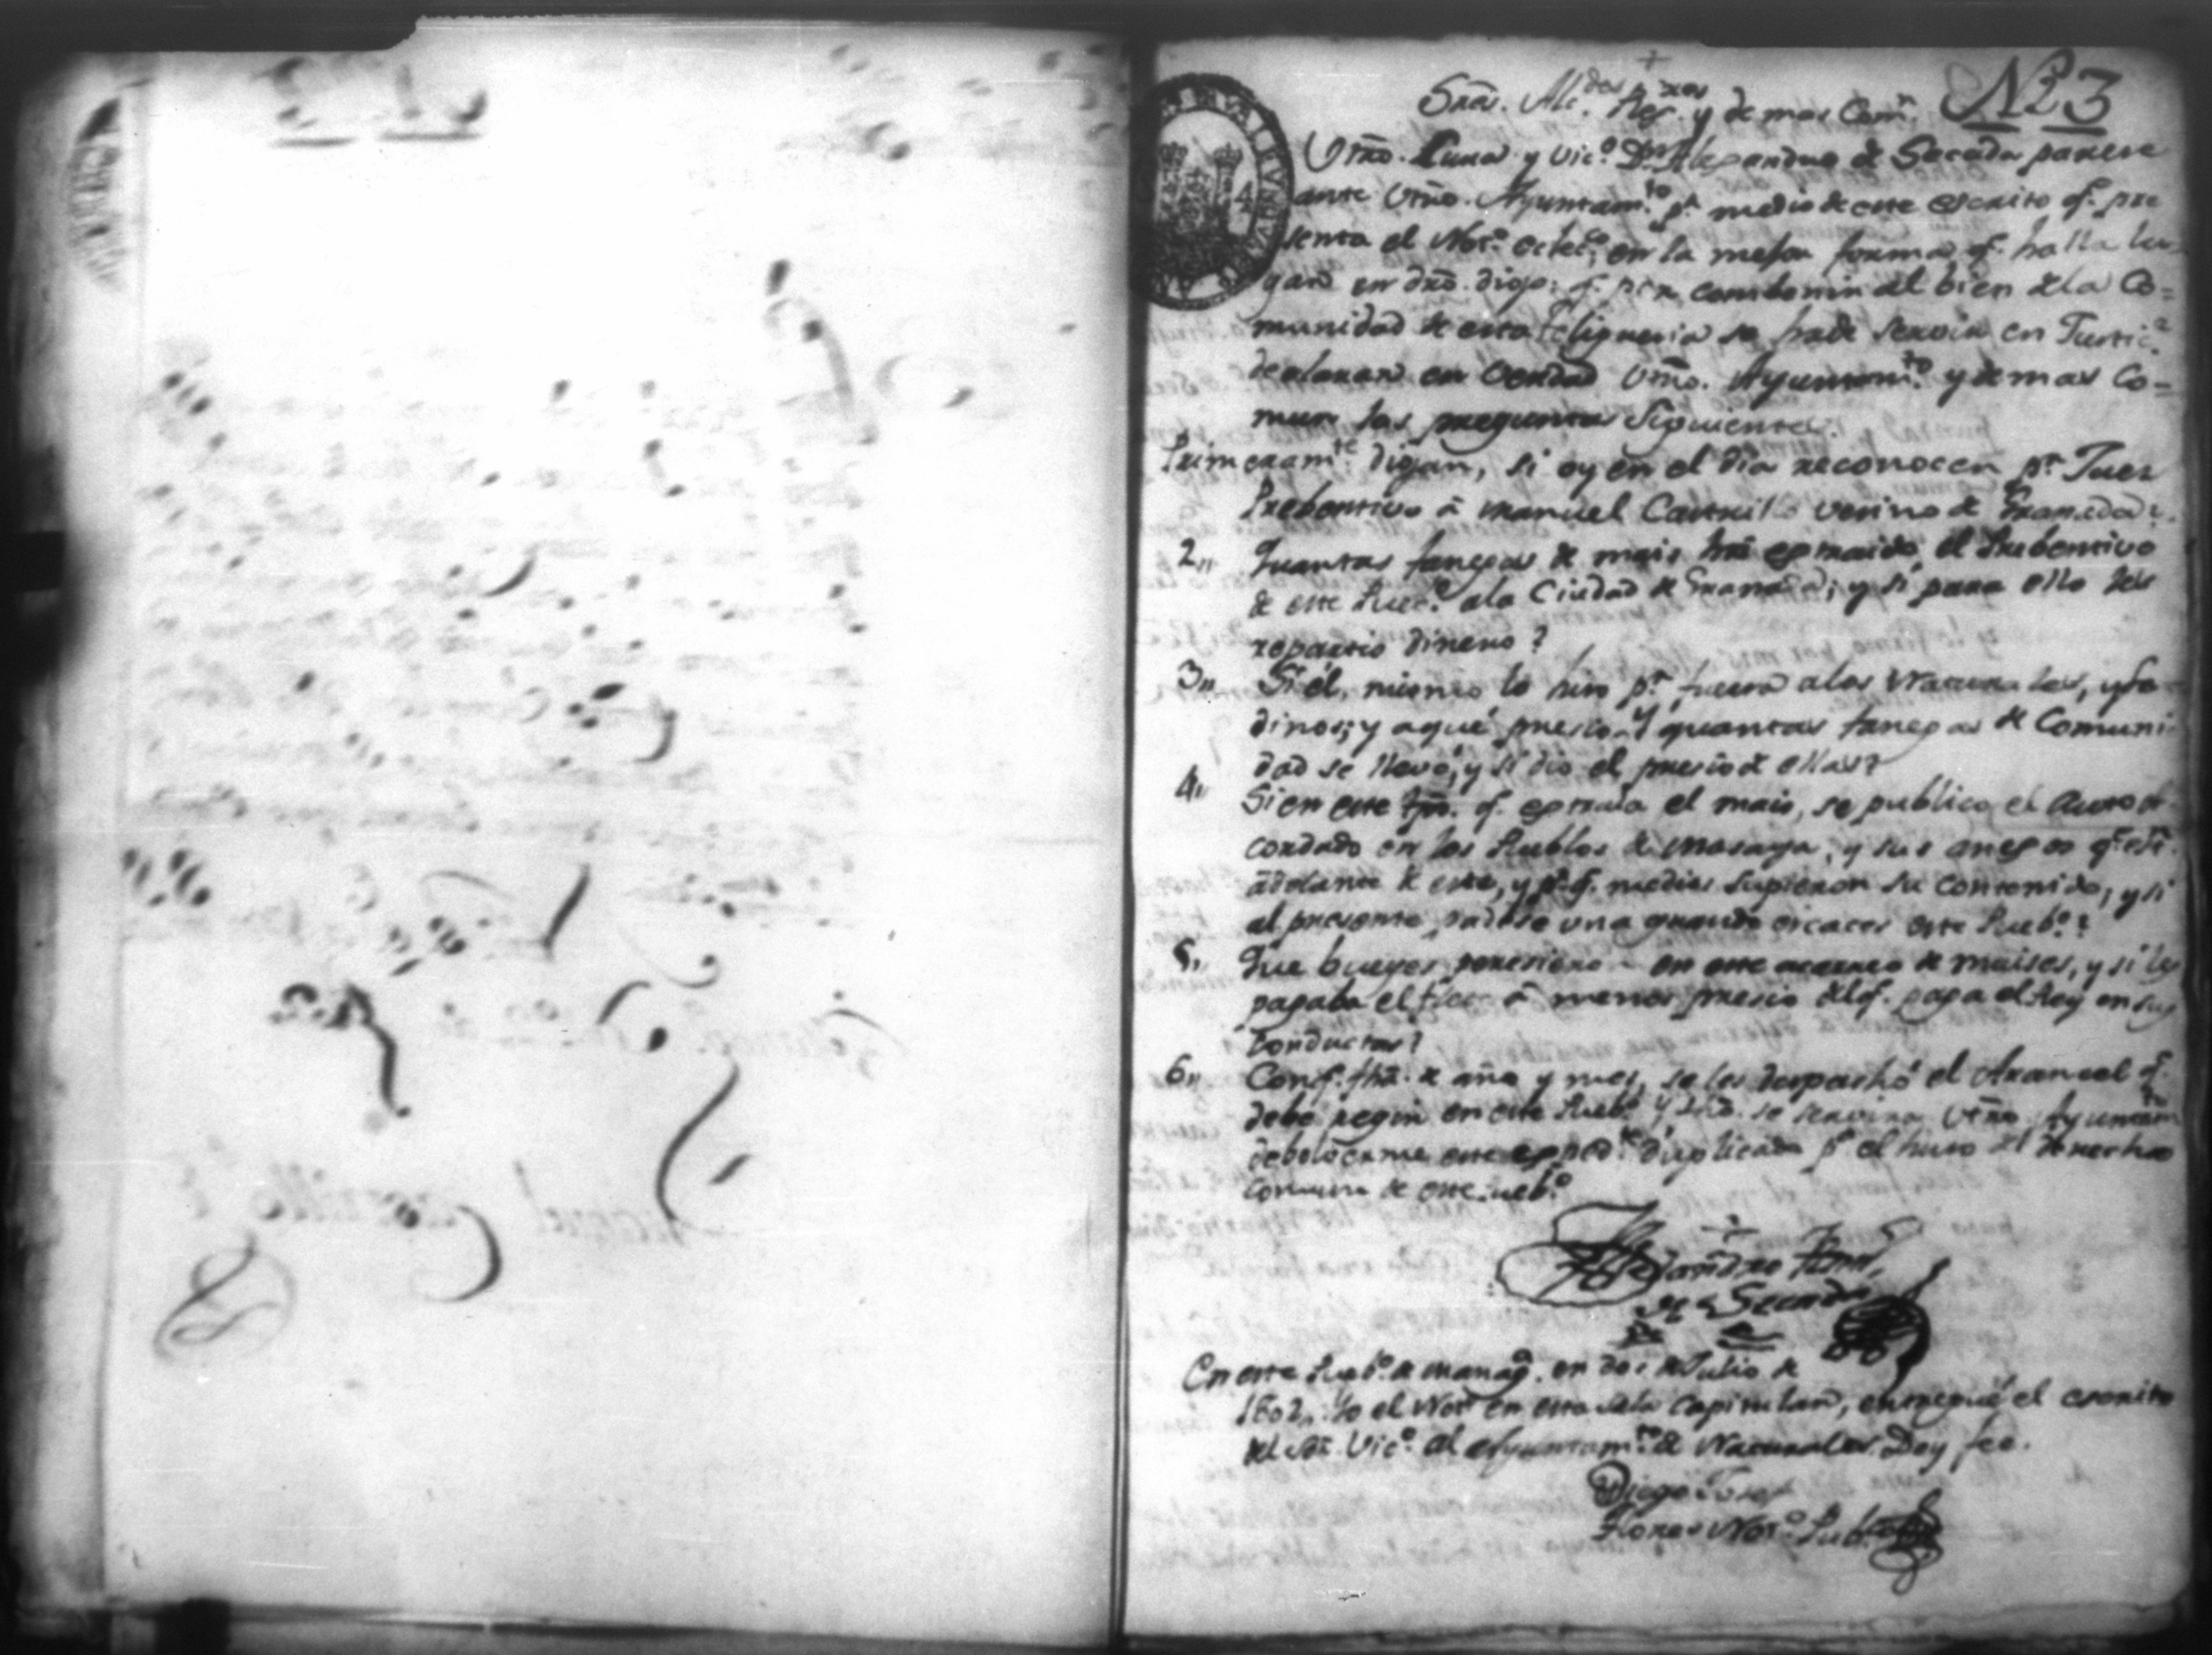 Nº 3
Sres. Alc.des Reg.res y demas Com.n
Vtro. Cura y Vic.o Dn Alexandro de Secada parece
ante Vtro. Ayuntam.to p.r medio de este escrito q.e pre
senta el Not.o en la mejor forma q.e halla lu
gar en dro. digo: q.e por combenir al bien de la Co=
munidad de esta feligrecia se hade servir en Justic.a
declarar en verdad Vtro. Ayuntam.to y demas Co=
mun las preguntas siguientes.
Primeram.te digan, si oy en el dia reconocen p.r Juez
Prebentivo â Manuel Castrillo vecino de Granada?
2,, Quantas fanegas de mais há extraido el Prebentivo
de este Pueb.o ala Ciudad de Granada; y si para ello les
repartio dinero?
3,, Si él mismo lo hiso p.r fuerza alos Naturales, y la
dinos; y aqué presio y quantas fanegas de Comuni
dad se llevó, y si dio el presio de ellas?
4,, Si en este tpo. q.e extraia el mais, se publico el Auto a
cordado en los Pueblos de Masaya, y sus anexos q.e estan
adelante de este, y p.r q.e medios supieron su contenido, y si
al presente padese una grande escaces este Pueb.o?
5,, Que bueyes peresieron en este acarreo de maises, y si les
pagaba el flete â menos presio del q.e paga el Rey en sus
conductas?
6,, Con q.e fha. de año y mes, se les despachó el Arancel q.e
debe regir en este Pueb.o y se servira Vtro. Ayuntam.to
debolberme este exped.te duplicado p.a el huso del derecho
comun de este Pueb.o
Alejandro Fern.z
de la Secada
En este Pueb.o de Manag.a en dos de Julio de
1802,, Yo el Not.o en esta sala capitular, entregué el escrito
del Sr. Vic.o al Ayuntam.to de Naturales. Doy fee.
Diego Josef
Flores Not.o Pub.co